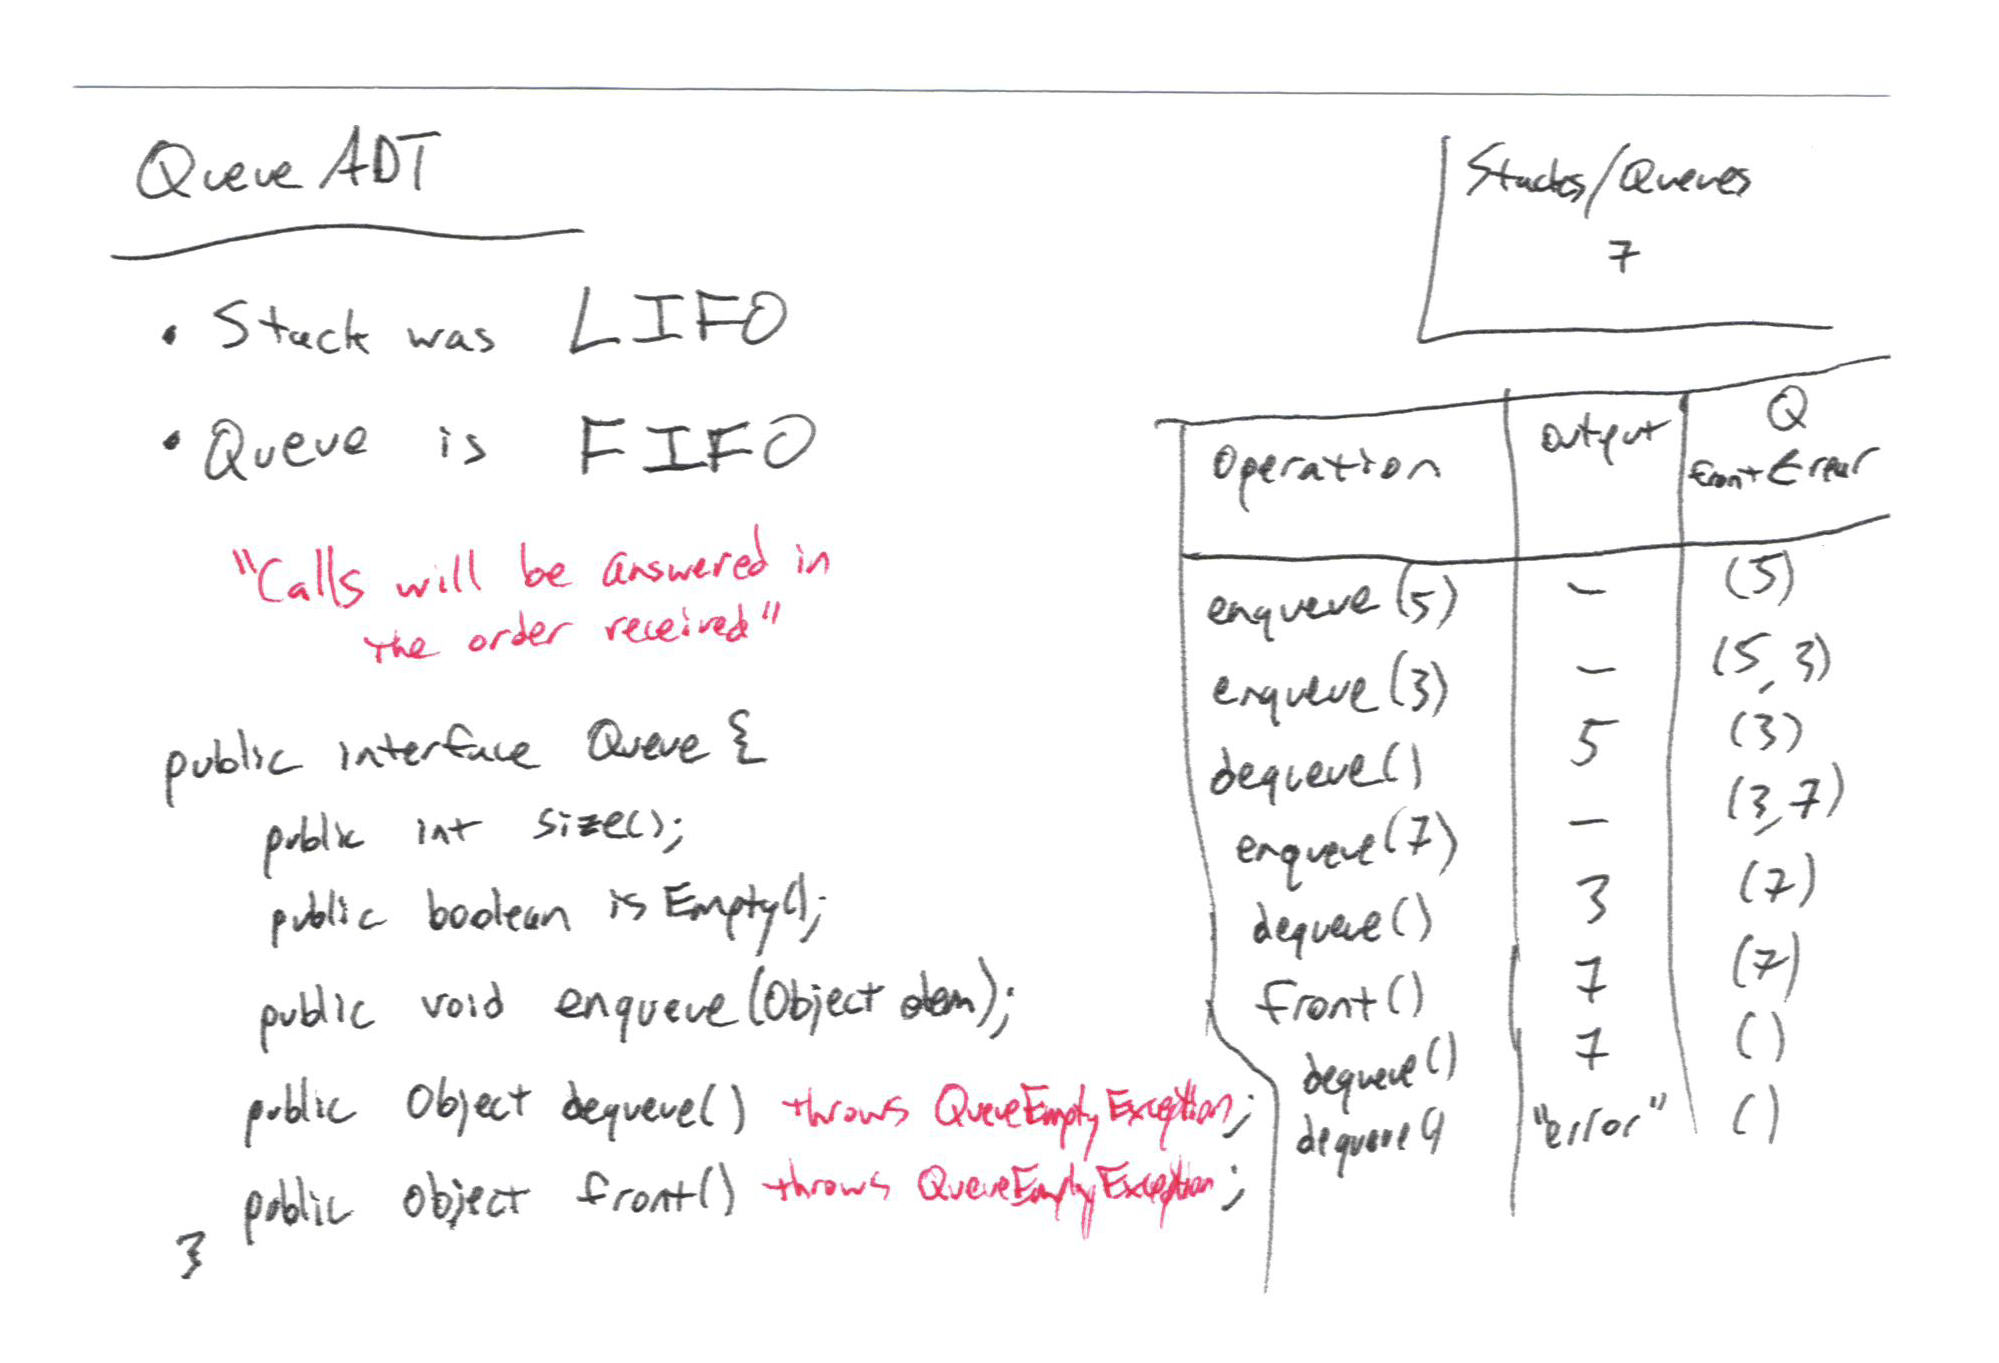 Queue ADT
Stacks/Queues
7
• Stack was LIFO
• Queue is FIFO
"Calls will be answered in
the order received"
public interface Queue {
public int size();
public boolean isEmpty();
public void enqueue(Object elem);
public Object dequeue() throws QueueEmptyException;
public Object front() throws QueueEmptyException;
}
Operation | Output | Q front ← rear
enqueue(5) – (5)
enqueue(3) – (5,3)
dequeue() 5 (3)
enqueue(7) – (3,7)
dequeue() 3 (7)
front() 7 (7)
dequeue() 7 ()
dequeue() "error" ()